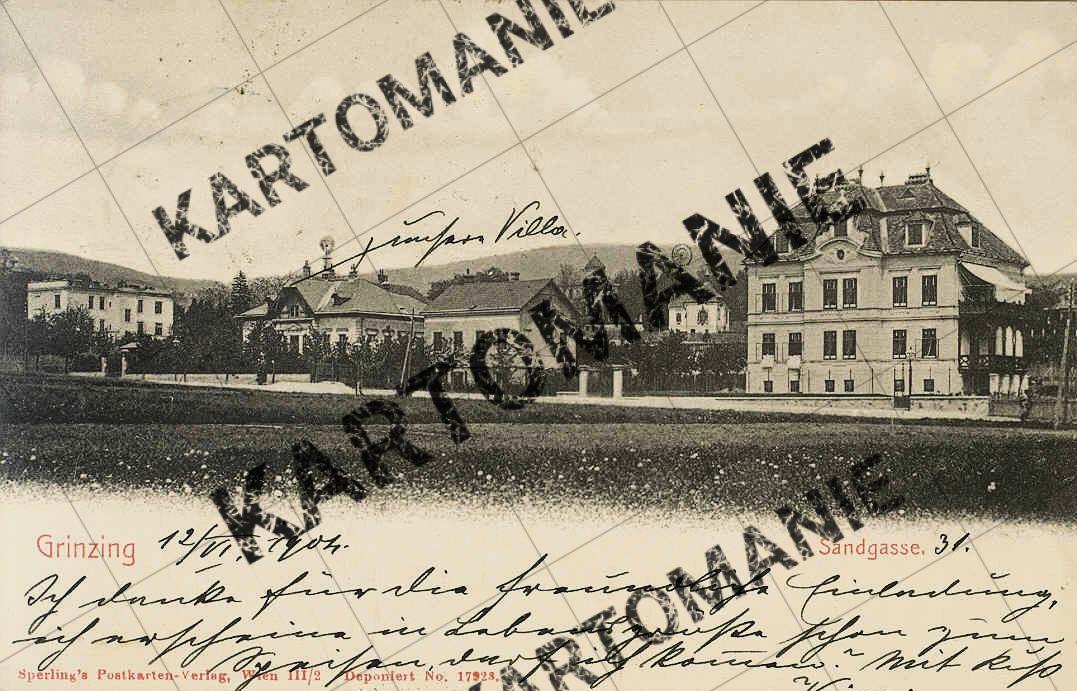 KARTOMANIE
KARTOMANIE
KARTOMANIE
unsere Villa.
Grinzing 12/VI. 1904.
Sandgasse. 31.
Ich danke für die freundliche Einladung,
ich erscheine in Lebensgröße schon zum
Speisen, darf ich kommen? Mit Kuß
Sperling's Postkarten-Verlag, Wien III/2 Deponiert No. 17923.